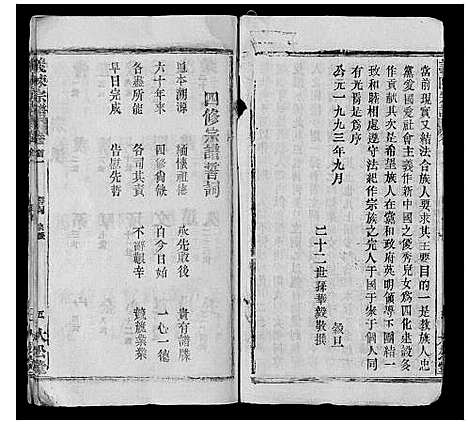 當前現實又結法合族人要求其主要目的一是教族人忠
黨愛國愛社會主義作新中國之優秀兒女為四化建設多
作貢獻其次是希望族人在黨政開明領導下與異姓異
族和睦相處遵守法紀作宗族之完人于同族人面前
有光焉是為序
公元一九九三年九月 穀旦
二十二世孫華毅敬撰
四修宗譜誓詞
追本溯源 緬懷祖德 承先啟後 貴有譜牒
六十年來 四修尚缺 自今日始 一心一德
各盡所能 各司其責 不辭艱辛 兢兢業業
早日完成 告慰先哲
宗譜 卷首
誓詞
五